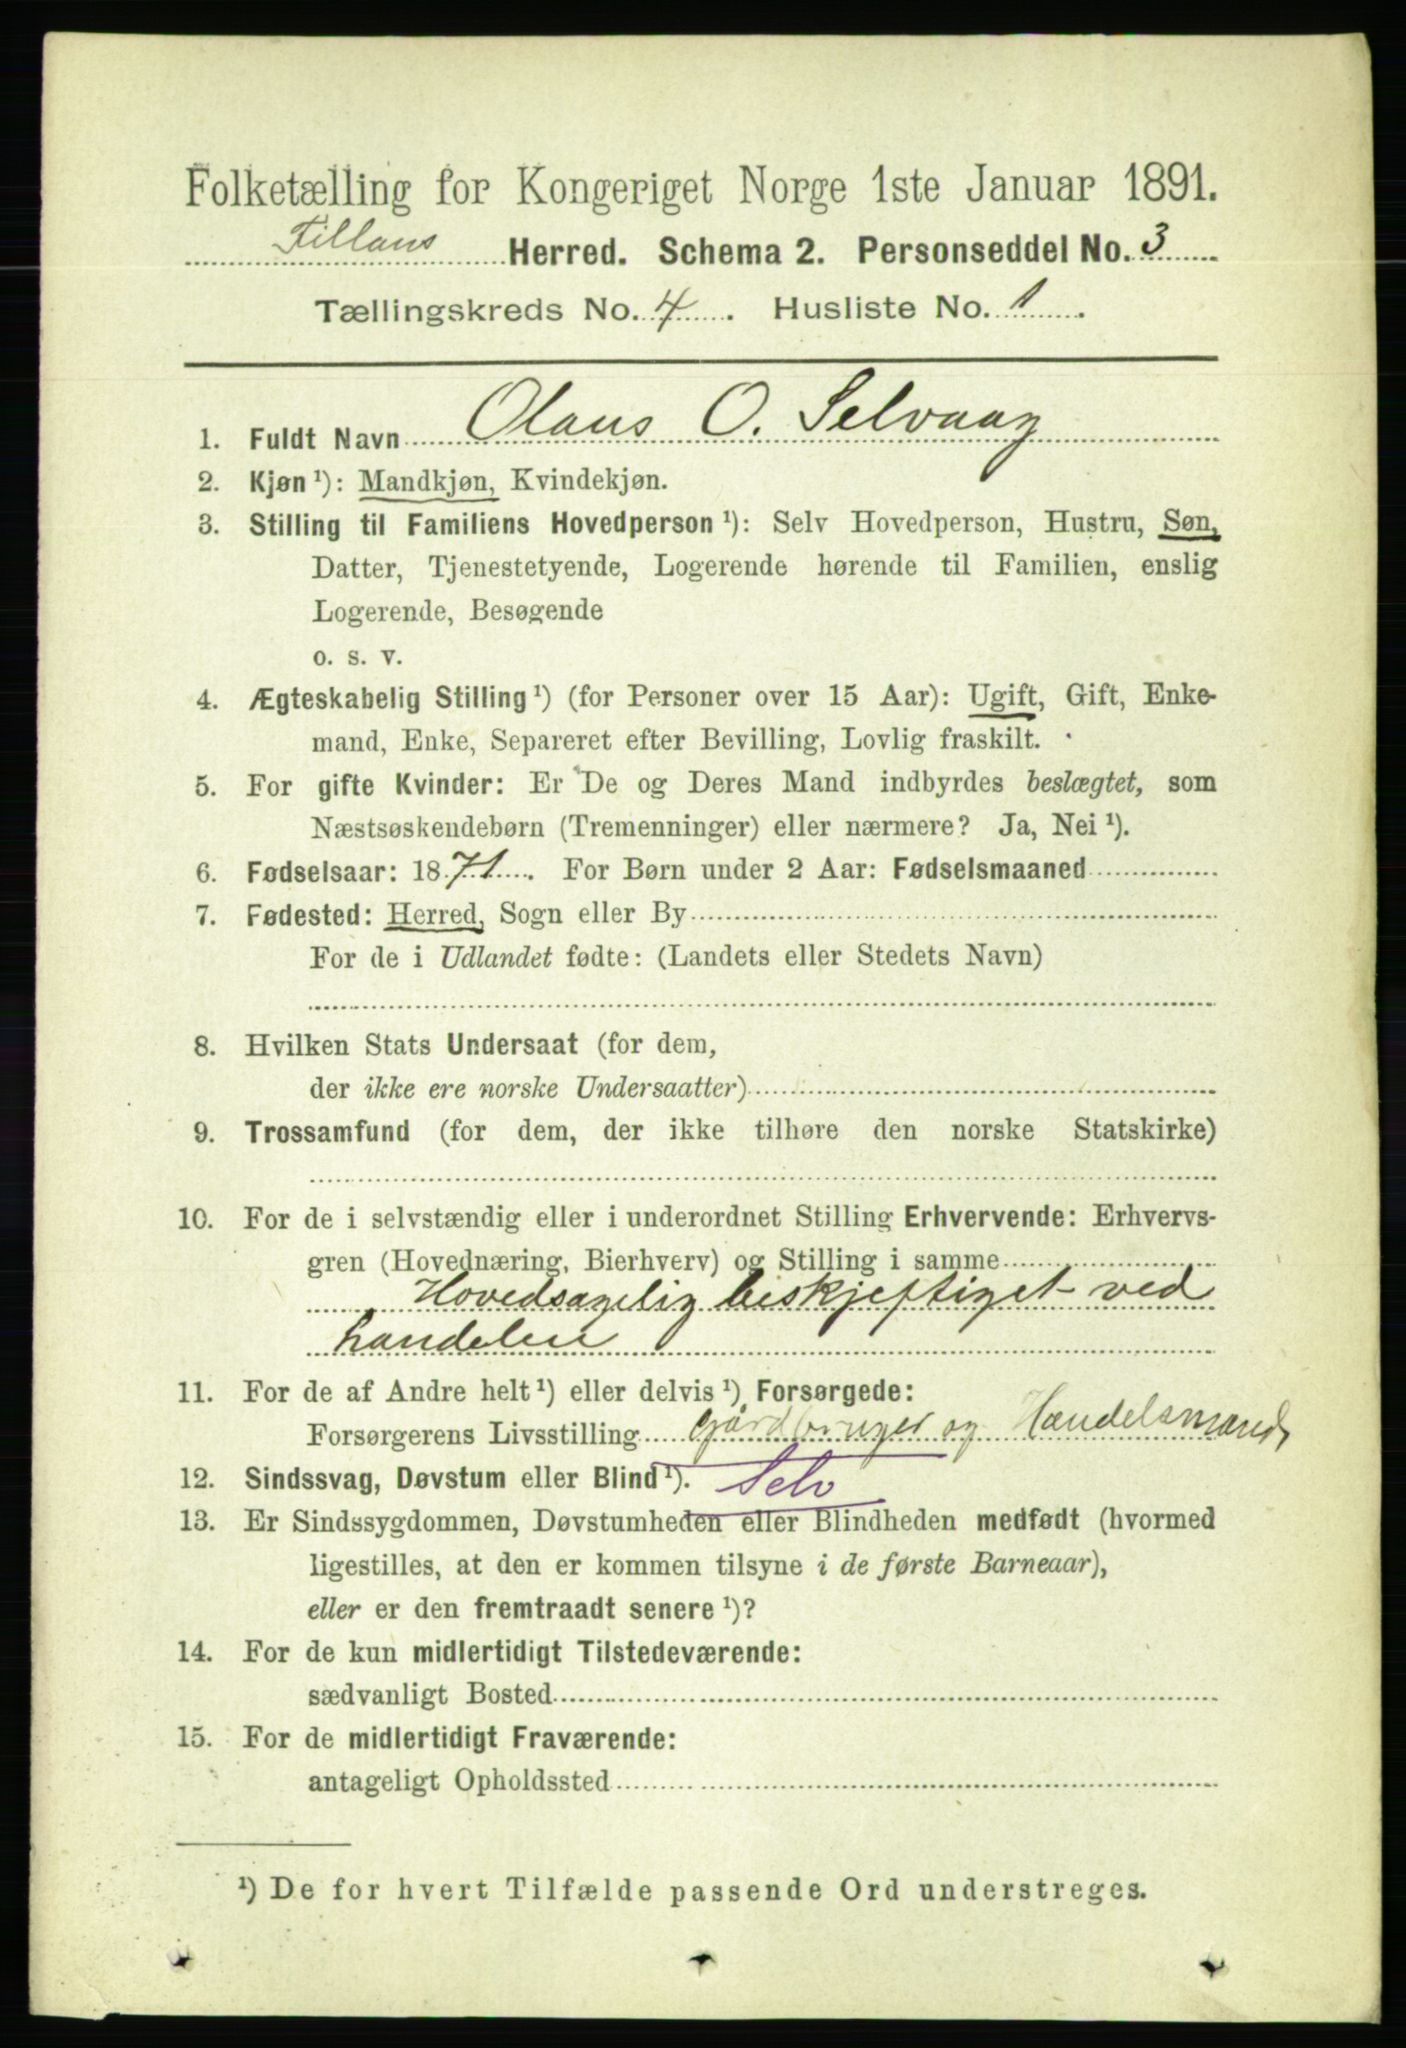 Folketælling for Kongeriget Norge 1ste Januar 1891.
Fillans Herred. Schema 2. Personseddel No. 3
Tællingskreds No. 4. Husliste No. 1.
1. Fuldt Navn Olaus O. Selvaag
2. Kjøn ¹): Mandkjøn, Kvindekjøn.
3. Stilling til Familiens Hovedperson ¹): Selv Hovedperson, Hustru, Søn,
Datter, Tjenestetyende, Logerende hørende til Familien, enslig
Logerende, Besøgende
o. s. v.
4. Ægteskabelig Stilling ¹) (for Personer over 15 Aar): Ugift, Gift, Enke-
mand, Enke, Separeret efter Bevilling, Lovlig fraskilt.
5. For gifte Kvinder: Er De og Deres Mand indbyrdes beslægtet, som
Næstsøskendebørn (Tremenninger) eller nærmere? Ja, Nei ¹).
6. Fødselsaar: 1871. For Børn under 2 Aar: Fødselsmaaned
7. Fødested: Herred, Sogn eller By
For de i Udlandet fødte: (Landets eller Stedets Navn)
8. Hvilken Stats Undersaat (for dem,
der ikke ere norske Undersaatter)
9. Trossamfund (for dem, der ikke tilhøre den norske Statskirke)
10. For de i selvstændig eller i underordnet Stilling Erhvervende: Erhvervs-
gren (Hovednæring, Bierhverv) og Stilling i samme
Hovedsagelig beskjeftiget ved
handelen
11. For de af Andre helt ¹) eller delvis ¹) Forsørgede:
Forsørgerens Livsstilling Gårdbruger og Handelsmand
12. Sindssvag, Døvstum eller Blind ¹). Selv
13. Er Sindssygdommen, Døvstumheden eller Blindheden medfødt (hvormed
ligestilles, at den er kommen tilsyne i de første Barneaar),
eller er den fremtraadt senere ¹)?
14. For de kun midlertidigt Tilstedeværende:
sædvanligt Bosted
15. For de midlertidigt Fraværende:
antageligt Opholdssted
¹) De for hvert Tilfælde passende Ord understreges.